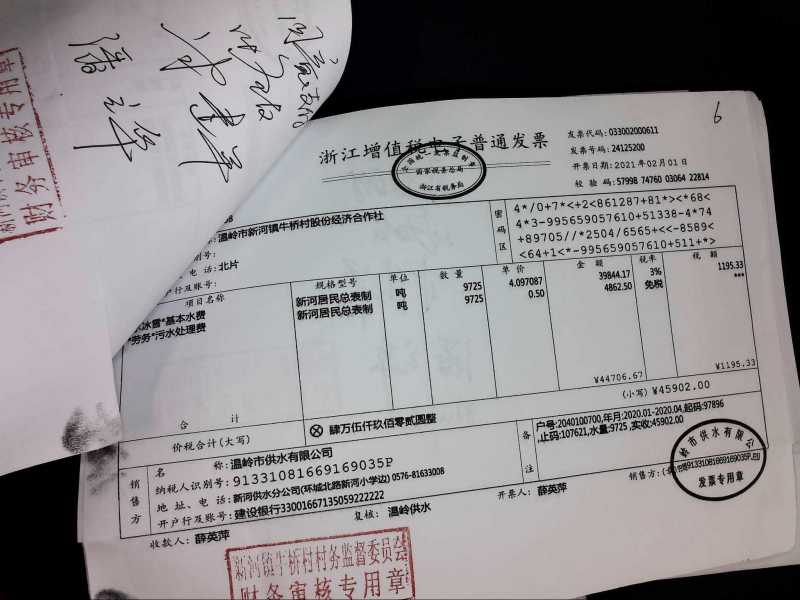 同意支付
财务审核专用章
6
浙江增值税电子普通发票
全国统一发票监制章
国家税务总局
浙江省税务局
发票代码: 033002000611
发票号码: 24125200
开票日期: 2021年02月01日
校 验 码: 57998 74760 03064 22814
:温岭市新河镇牛桥村股份经济合作社
别号:
电 话: 北片
户行及账号:
密码区
4*/0+7*<+2<861287+81*><*68<
4*3-995659057610+51338-4*74
+89705//*2504/6565+<<-8589<
<64+1<*-995659057610+511+*>
项目名称 规格型号 单位 数量 单价 金额 税率 税额
冰雪*基本水费 新河居民总表制 吨 9725 4.097087 39844.17 3% 1195.33
*劳务*污水处理费 新河居民总表制 吨 9725 0.50 4862.50 免税 ***
合 计 ¥44706.67 ¥1195.33
价税合计(大写) ⊗ 肆万伍仟玖佰零贰圆整 (小写) ¥45902.00
销售方
名 称: 温岭市供水有限公司
纳税人识别号: 91331081669169035P
地 址、电 话: 新河供水分公司(环城北路新河小学边) 0576-81633008
开户行及账号: 建设银行33001667135059222222
备注
户号:2040100700,年月:2020.01-2020.04,起码:97896
,止码:107621,水量:9725,实收:45902.00
收款人: 薛英萍 复核: 温岭供水 开票人: 薛英萍 销售方:
岭市供水有限公
91331081669169035P
发票专用章
新河镇牛桥村村务监督委员会
财务审核专用章